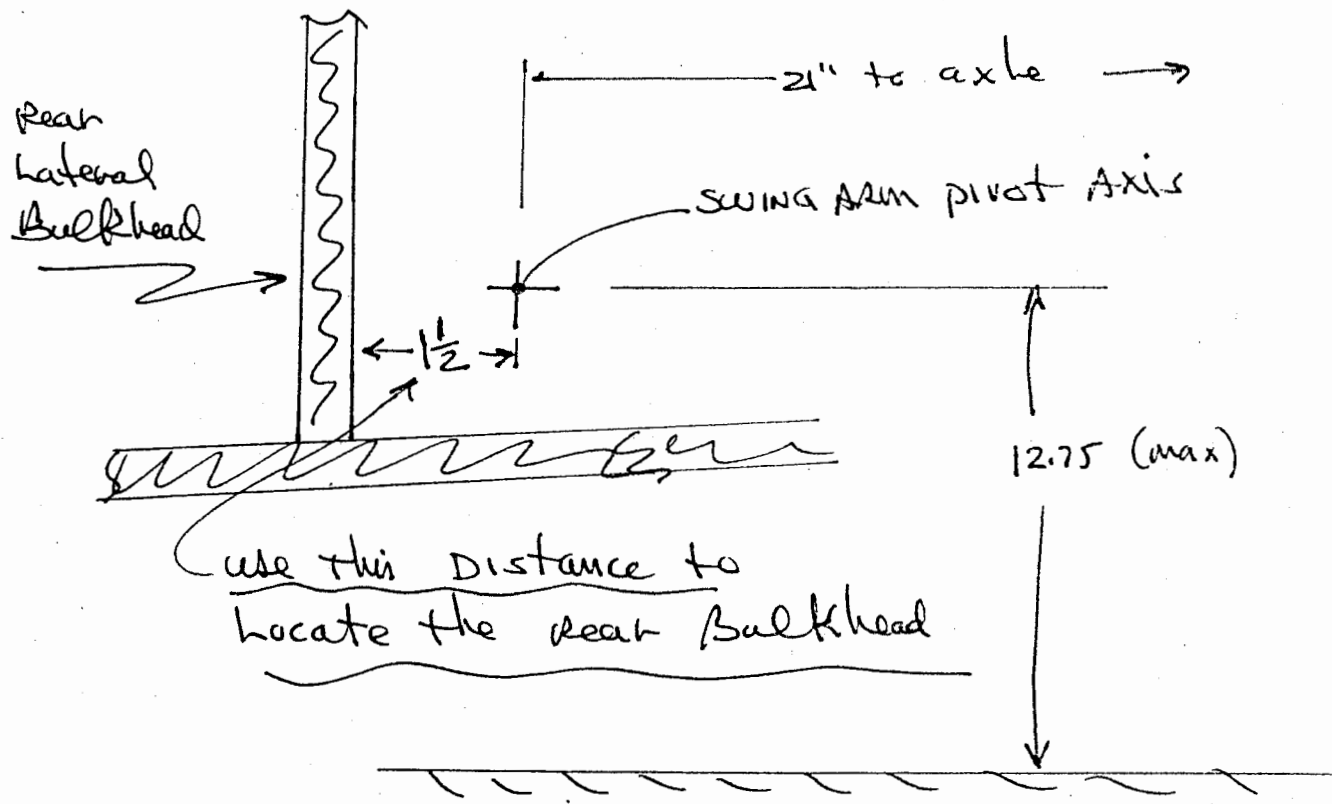 21" to axle
Rear
Lateral
Bulkhead
SWING ARM pivot Axis
1 1/2
12.75 (max)
use this Distance to
Locate the Rear Bulkhead